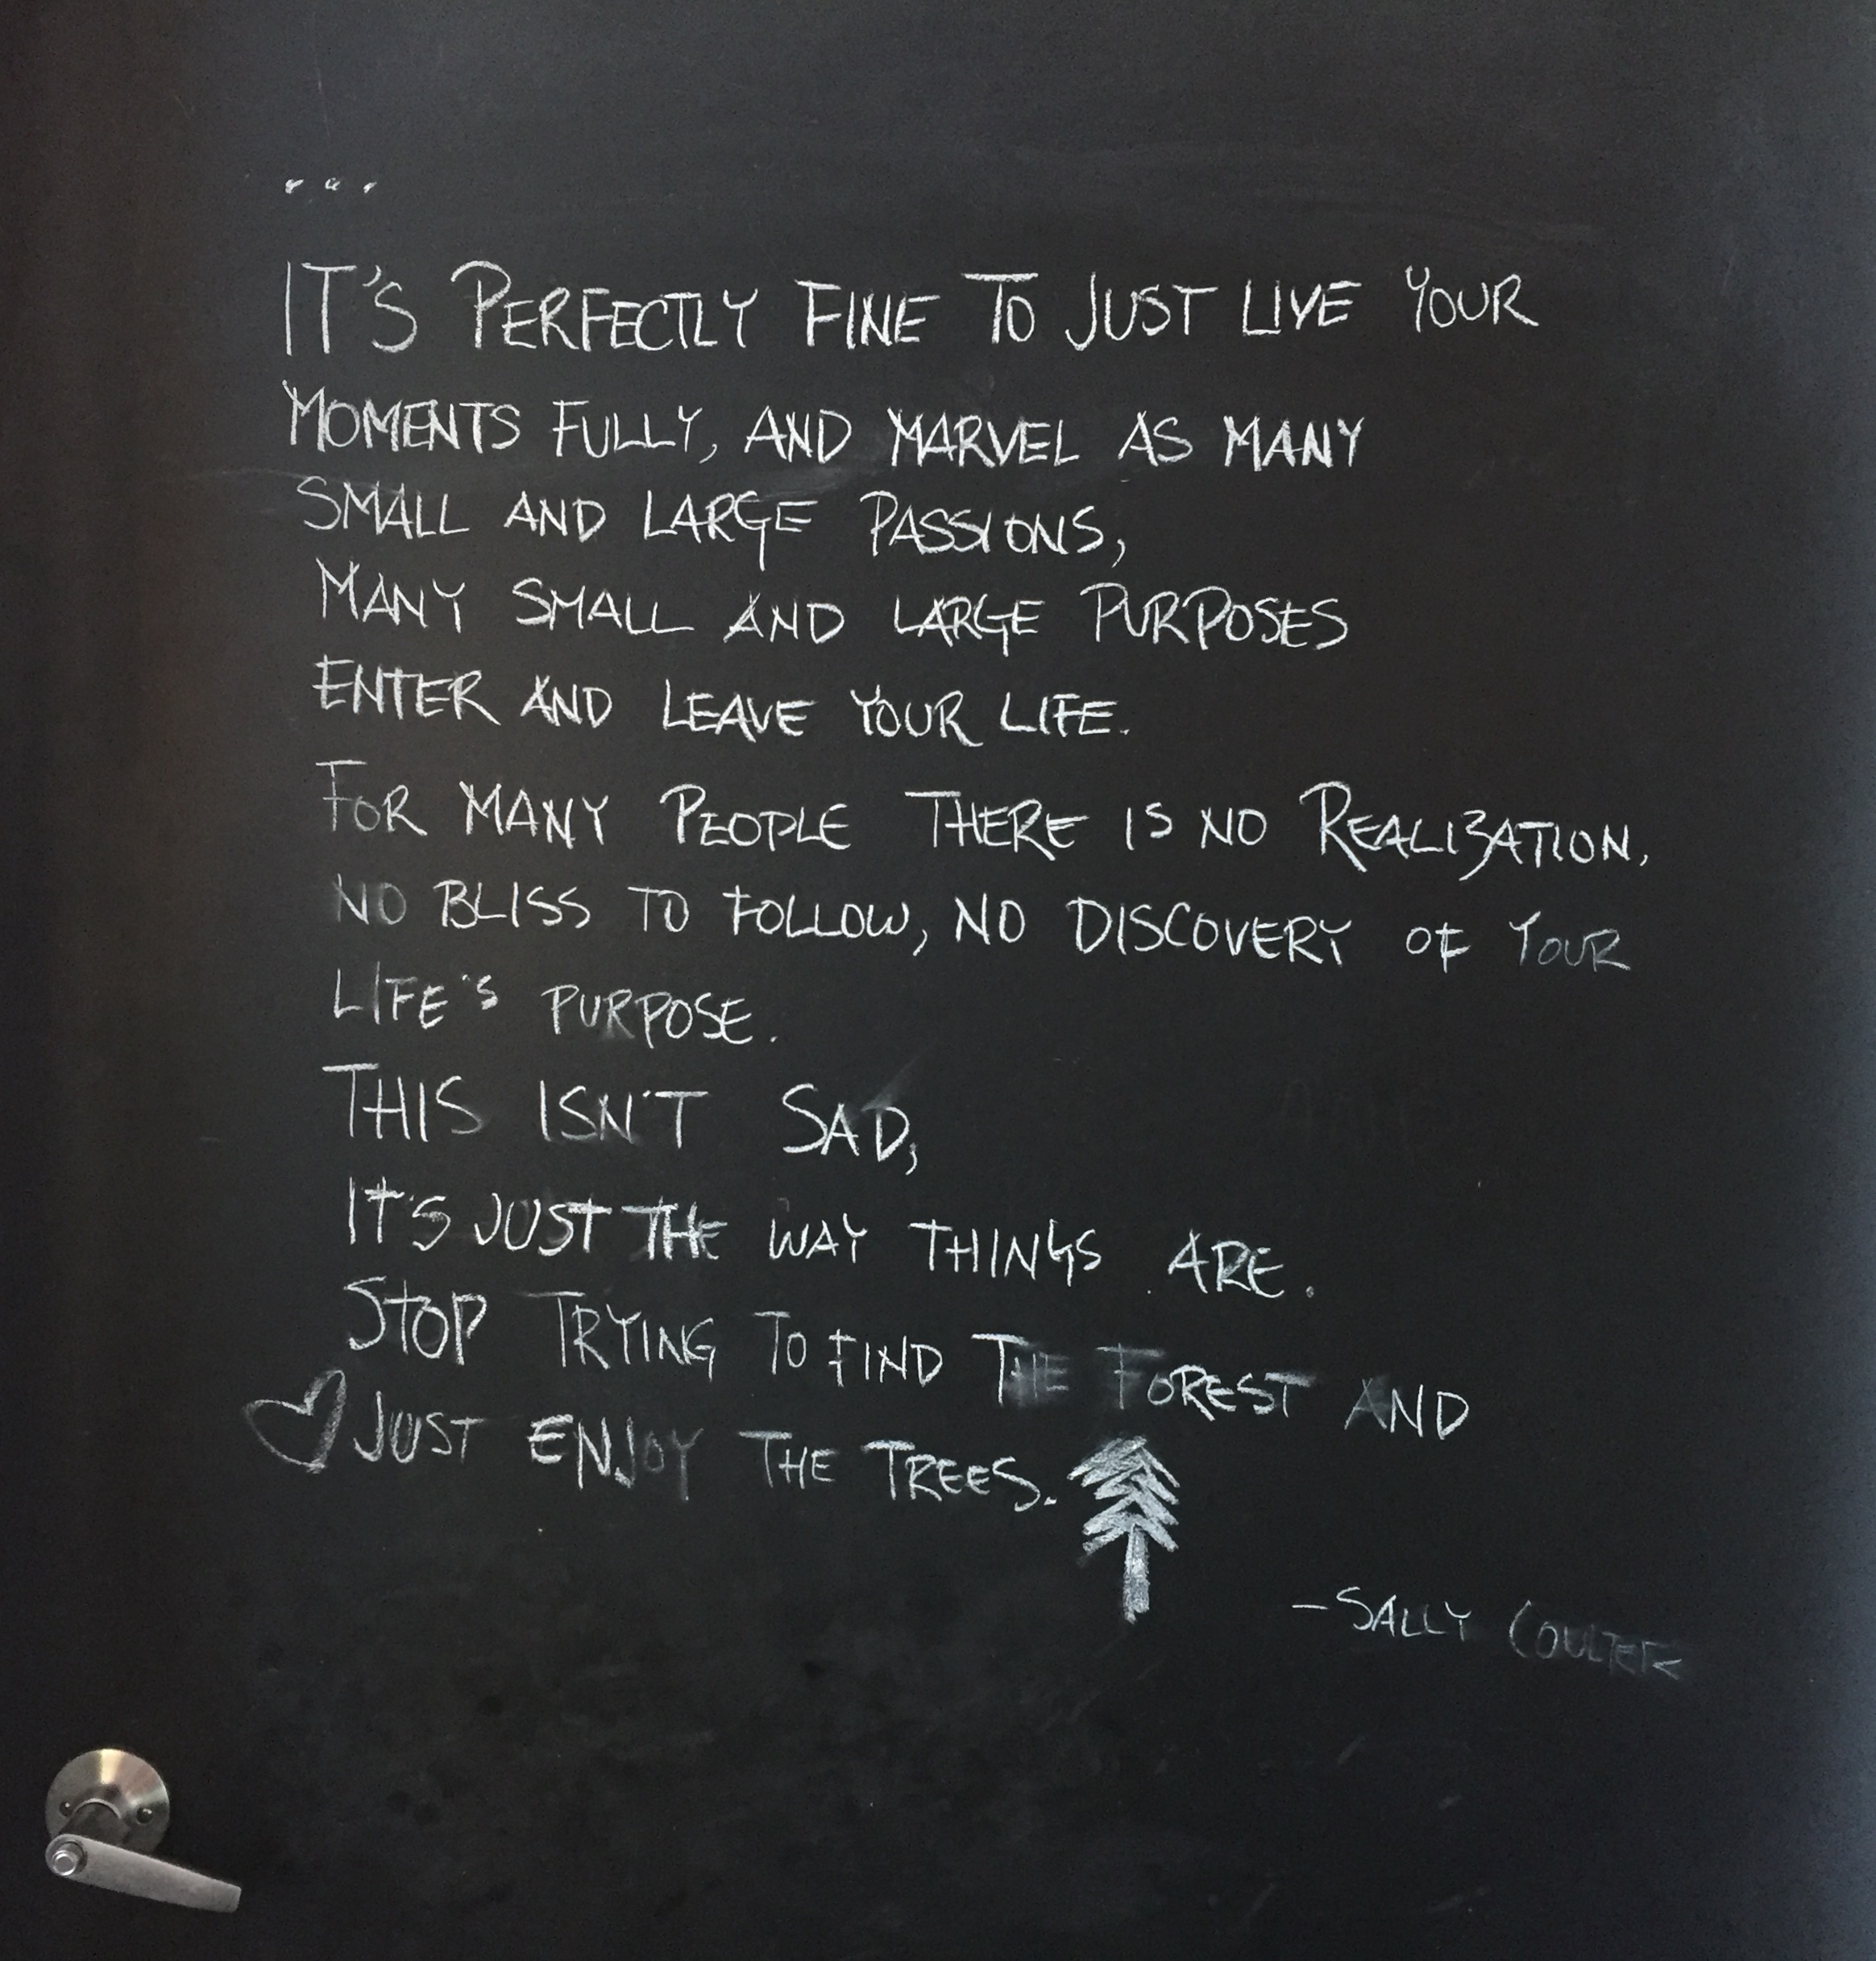 ...
IT'S PERFECTLY FINE TO JUST LIVE YOUR
MOMENTS FULLY, AND MARVEL AS MANY
SMALL AND LARGE PASSIONS,
MANY SMALL AND LARGE PURPOSES
ENTER AND LEAVE YOUR LIFE.
FOR MANY PEOPLE THERE IS NO REALIZATION,
NO BLISS TO FOLLOW, NO DISCOVERY OF YOUR
LIFE'S PURPOSE.
THIS ISN'T SAD,
IT'S JUST THE WAY THINGS ARE.
STOP TRYING TO FIND THE FOREST AND
JUST ENJOY THE TREES.
-SALLY COULTER